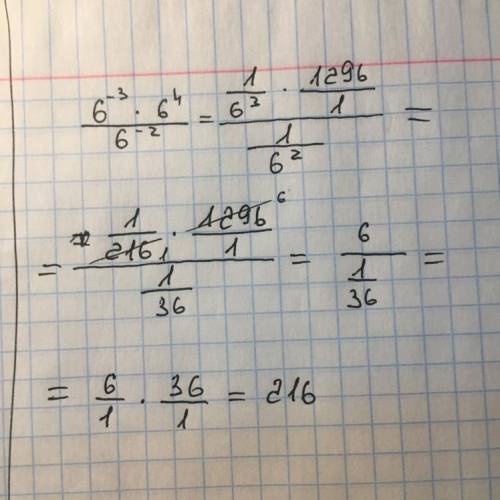 (6⁻³ · 6⁴)/(6⁻²) = (1/6³ · 1296/1)/(1/6²) =
= (1/216 1 · 1296 6/1)/(1/36) = 6/(1/36) =
= 6/1 · 36/1 = 216